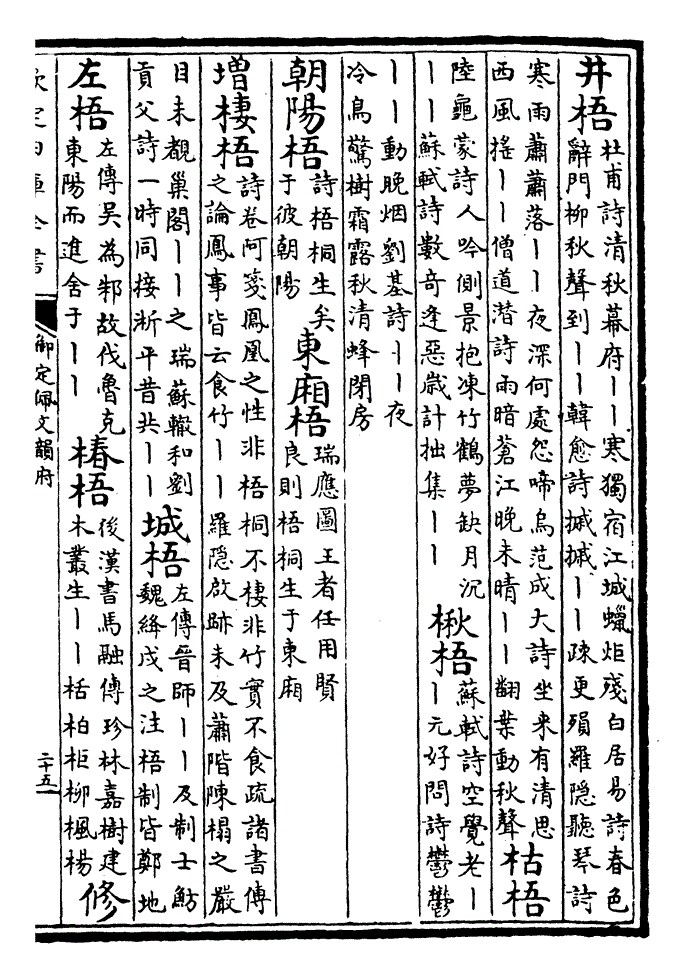 井梧
杜甫詩清秋幕府丨丨寒獨宿江城蠟炬殘白居易詩春色
辭門柳秋聲到丨丨韓愈詩摵摵丨丨疎更殞羅隐聽琴詩
寒雨蕭蕭落丨丨夜深何處怨啼烏范成大詩坐来有清思
西風搖丨丨僧道潜詩雨暗蒼江晚未晴丨丨翻葉動秋聲
枯梧
陸龜蒙詩人吟側景抱凍竹鶴夢缺月沉
丨丨蘇軾詩數奇逢惡歲計拙集丨丨
楸梧
蘇軾詩空覺老丨
丨元好問詩鬱鬱
丨丨動晚烟劉基詩丨丨夜
冷鳥驚樹霜露秋清蜂閉房
朝陽梧
詩梧桐生矣
于彼朝陽
東廂梧
瑞應圖王者任用賢
良則梧桐生于東廂
増棲梧
詩卷阿箋鳳凰之性非梧桐不棲非竹實不食疏諸書傳
之論鳳事皆云食竹丨丨羅隐啟跡未及蕭階陳榻之嚴
目未覩巢閣丨丨之瑞蘇轍和劉
貢父詩一時同接淅平昔共丨丨
城梧
左傳晉師丨丨及制士魴
魏絳戍之注梧制皆鄭地
左梧
左傳吳為邾故伐魯克
東陽而進舍于丨丨
椿梧
後漢書馬融傳珍林嘉樹建
木叢生丨丨栝柏柜柳楓楊
修
欽定四庫全書
御定佩文韻府
二十五